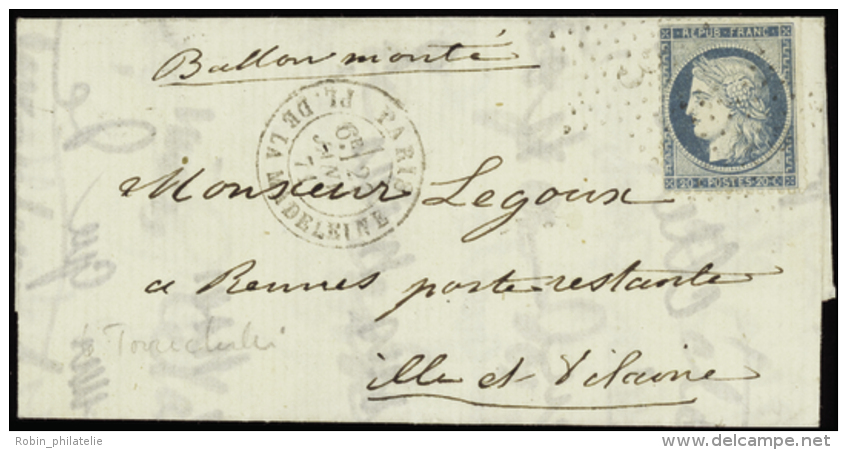 Ballon monté
REPUB. FRANC.
20 POSTES 20
PARIS
PL. DE LA MADELEINE
6E
JANV
71
Monsieur Legoux
a Rennes poste restante
ille et Vilaine
Robin_philatelie
www.delcampe.net